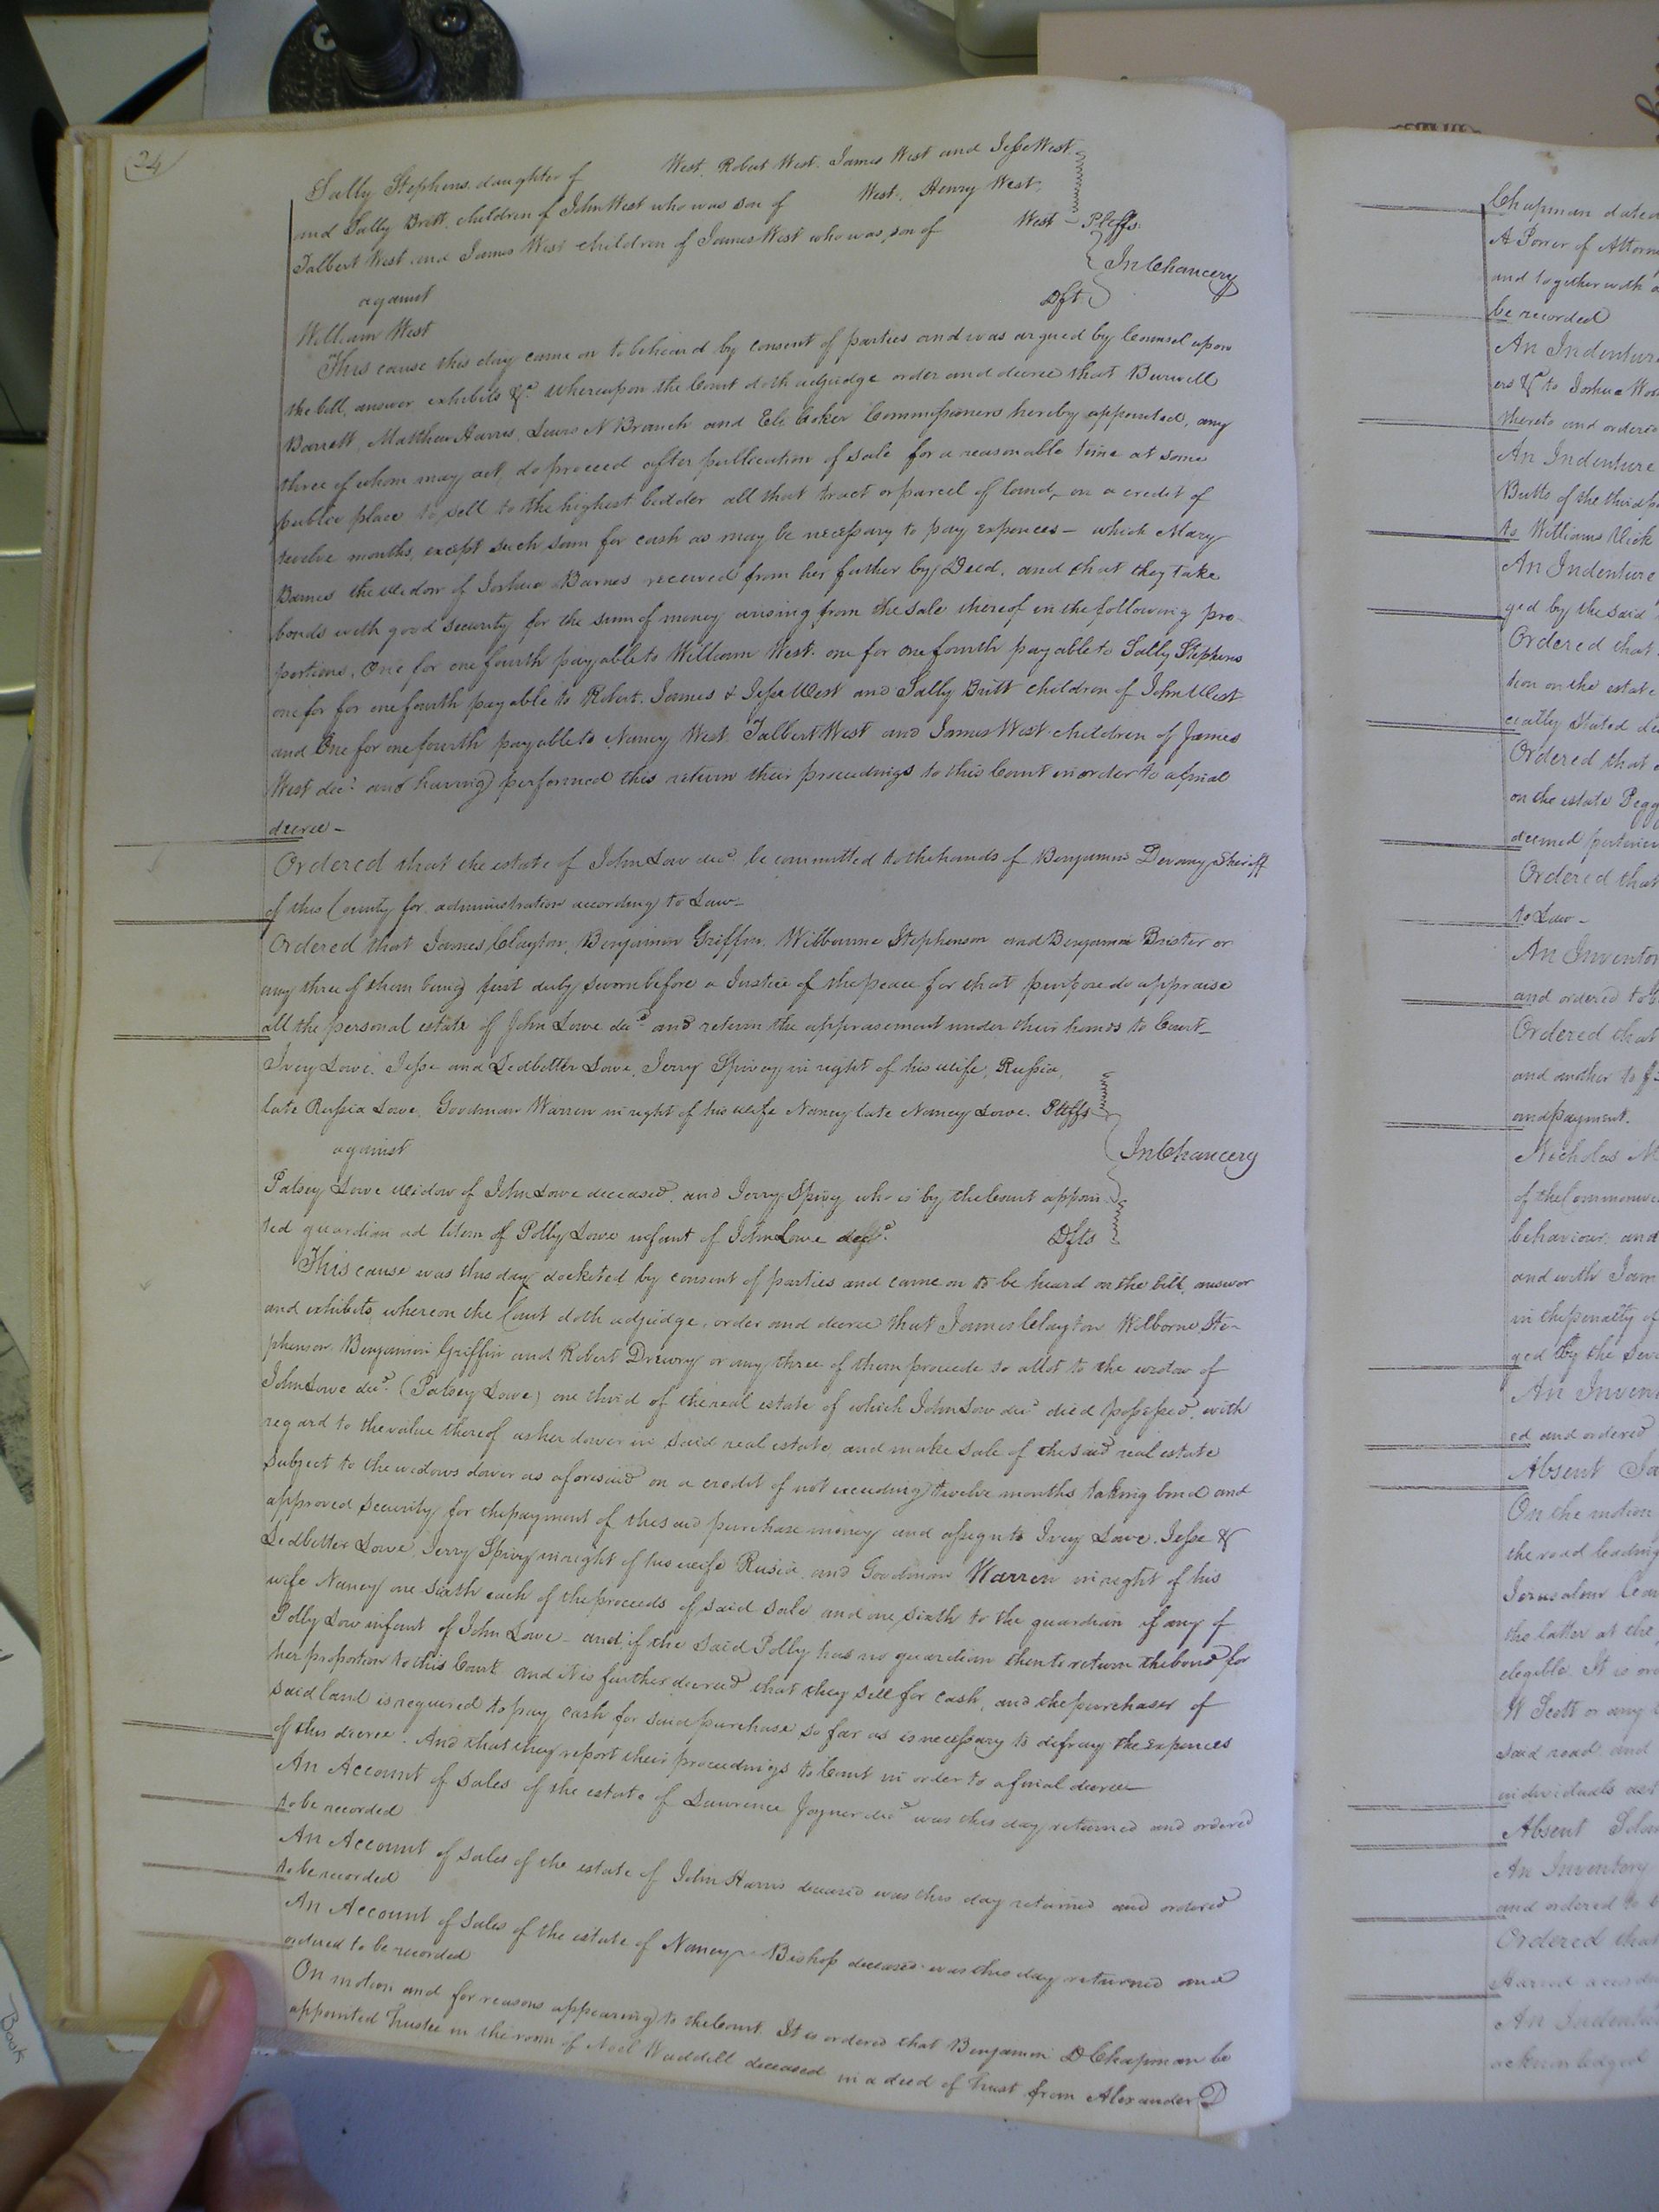 24
Sally Stephens daughter of West, Robert West, James West and Jesse West
and Sally Britt children of John West who was son of West, Henry West,
Talbert West and James West children of James West who was son of West Pltffs
In Chancery
against
Dft
William West
This cause this day came on to be heard by consent of parties and was argued by Counsel upon
the bill, answer exhibits &c. Whereupon the Court doth adjudge order and decree that Burwell
Barrett, Matthew Harris, Lewis N Branch and Eli Coker Commissioners hereby appointed, any
three of whom may act, do proceed after publication of sale for a reasonable time at some
public place to sell to the highest bidder all that tract or parcel of land, on a credit of
twelve months, except such sum for cash as may be necessary to pay expences - which Mary
Barnes the widow of Joshua Barnes received from her father by Deed, and that they take
bonds with good security for the sum of money arising from the sale thereof in the following pro-
portions, One for one fourth payable to William West. one for one fourth payable to Sally Stephens
one for for one fourth payable to Robert, James & Jesse West and Sally Britt children of John West
and One for one fourth payable to Nancy West Talbert West and James West children of James
West decd. and having performed this return their proceedings to this Court in order to a final
decree -
Ordered that the estate of John Low decd. be committed to the hands of Benjamin Devany Sheriff
of this County for administration according to Law -
Ordered that James Clayton, Benjamin Griffin, Wilbourne Stephenson and Benjamin Brister or
any three of them being first duly sworn before a Justice of the peace for that purpose do appraise
all the personal estate of John Lowe decd. and return the appraisement under their hands to Court -
Ivey Lowe, Jesse and Ledbetter Lowe, Jerry Spivey in right of his wife, Russia,
late Russia Lowe, Goodman Warren in right of his wife Nancy late Nancy Lowe. Pltffs
against
In Chancery
Patsey Lowe widow of John Lowe deceased, and Jerry Spivy who is by the Court appoin
ted guardian ad litem of Polly Lowe infant of John Lowe decd. Dfts
This cause was this day docketed by consent of parties and came on to be heard on the bill, answer
and exhibits, whereon the Court doth adjudge, order and decree that James Clayton Wilborne Ste-
phenson Benjamin Griffin and Robert Drewry or any three of them procede to allot to the widow of
John Lowe decd. (Patsey Lowe) one third of the real estate of which John Low decd died possessed, with
regard to the value thereof as her dower in said real estate, and make sale of the said real estate
subject to the widows dower as aforesaid on a credit of not exceeding twelve months taking bond and
approved security for the payment of the said purchase money and assign to Ivey Lowe. Jesse &
Ledbetter Lowe, Jerry Spivy in right of his wife Rusia. and Goodman Warren in right of his
wife Nancy one sixth each of the proceeds of said sale and one sixth to the guardian if any of
Polly Low infant of John Lowe - and if the said Polly has no guardian then to return the bond for
her proportion to this Court and it is further decreed that they sell for cash, and the purchaser of
said land is required to pay cash for said purchase so far as is necessary to defray the expences
of this decree. And that they report their proceedings to Court in order to a final decree
An Account of sales of the estate of Lawrence Joyner decd was this day returned and ordered
to be recorded
An Account of sales of the estate of John Harris deceased was this day returned and ordered
to be recorded
An Account of sales of the estate of Nancy Bishop deceased was this day returned and
ordered to be recorded
On motion and for reasons appearing to the Court. It is ordered that Benjamin D Chapman be
appointed trustee in the room of Noel Waddill deceased in a deed of trust from Alexander D
Chapman dated
A Power of Attorn
and together with
be recorded
An Indenture
ers &c to Joshua
thereto and ordered
An Indenture
Butts of the third
to Williams
An Indenture
ged by the said
Ordered that
tion on the estate
cially stated
Ordered that
on the estate
deemed
Ordered that
to Law -
An Inventor
and ordered to
Ordered that
and another to
and payment.
Nicholas M
of the Commonwe
behaviour, and
and with Jam
in the penalty of
ged by the
An Inven
ed and ordered
Absent
On the motion
the road leading
Jerusalem
the latter at the
elegible. It is
W Scott or any
said road and
individuals as
Absent
An Inventory
and ordered to
Ordered that
An Indentu
acknowledged
Book